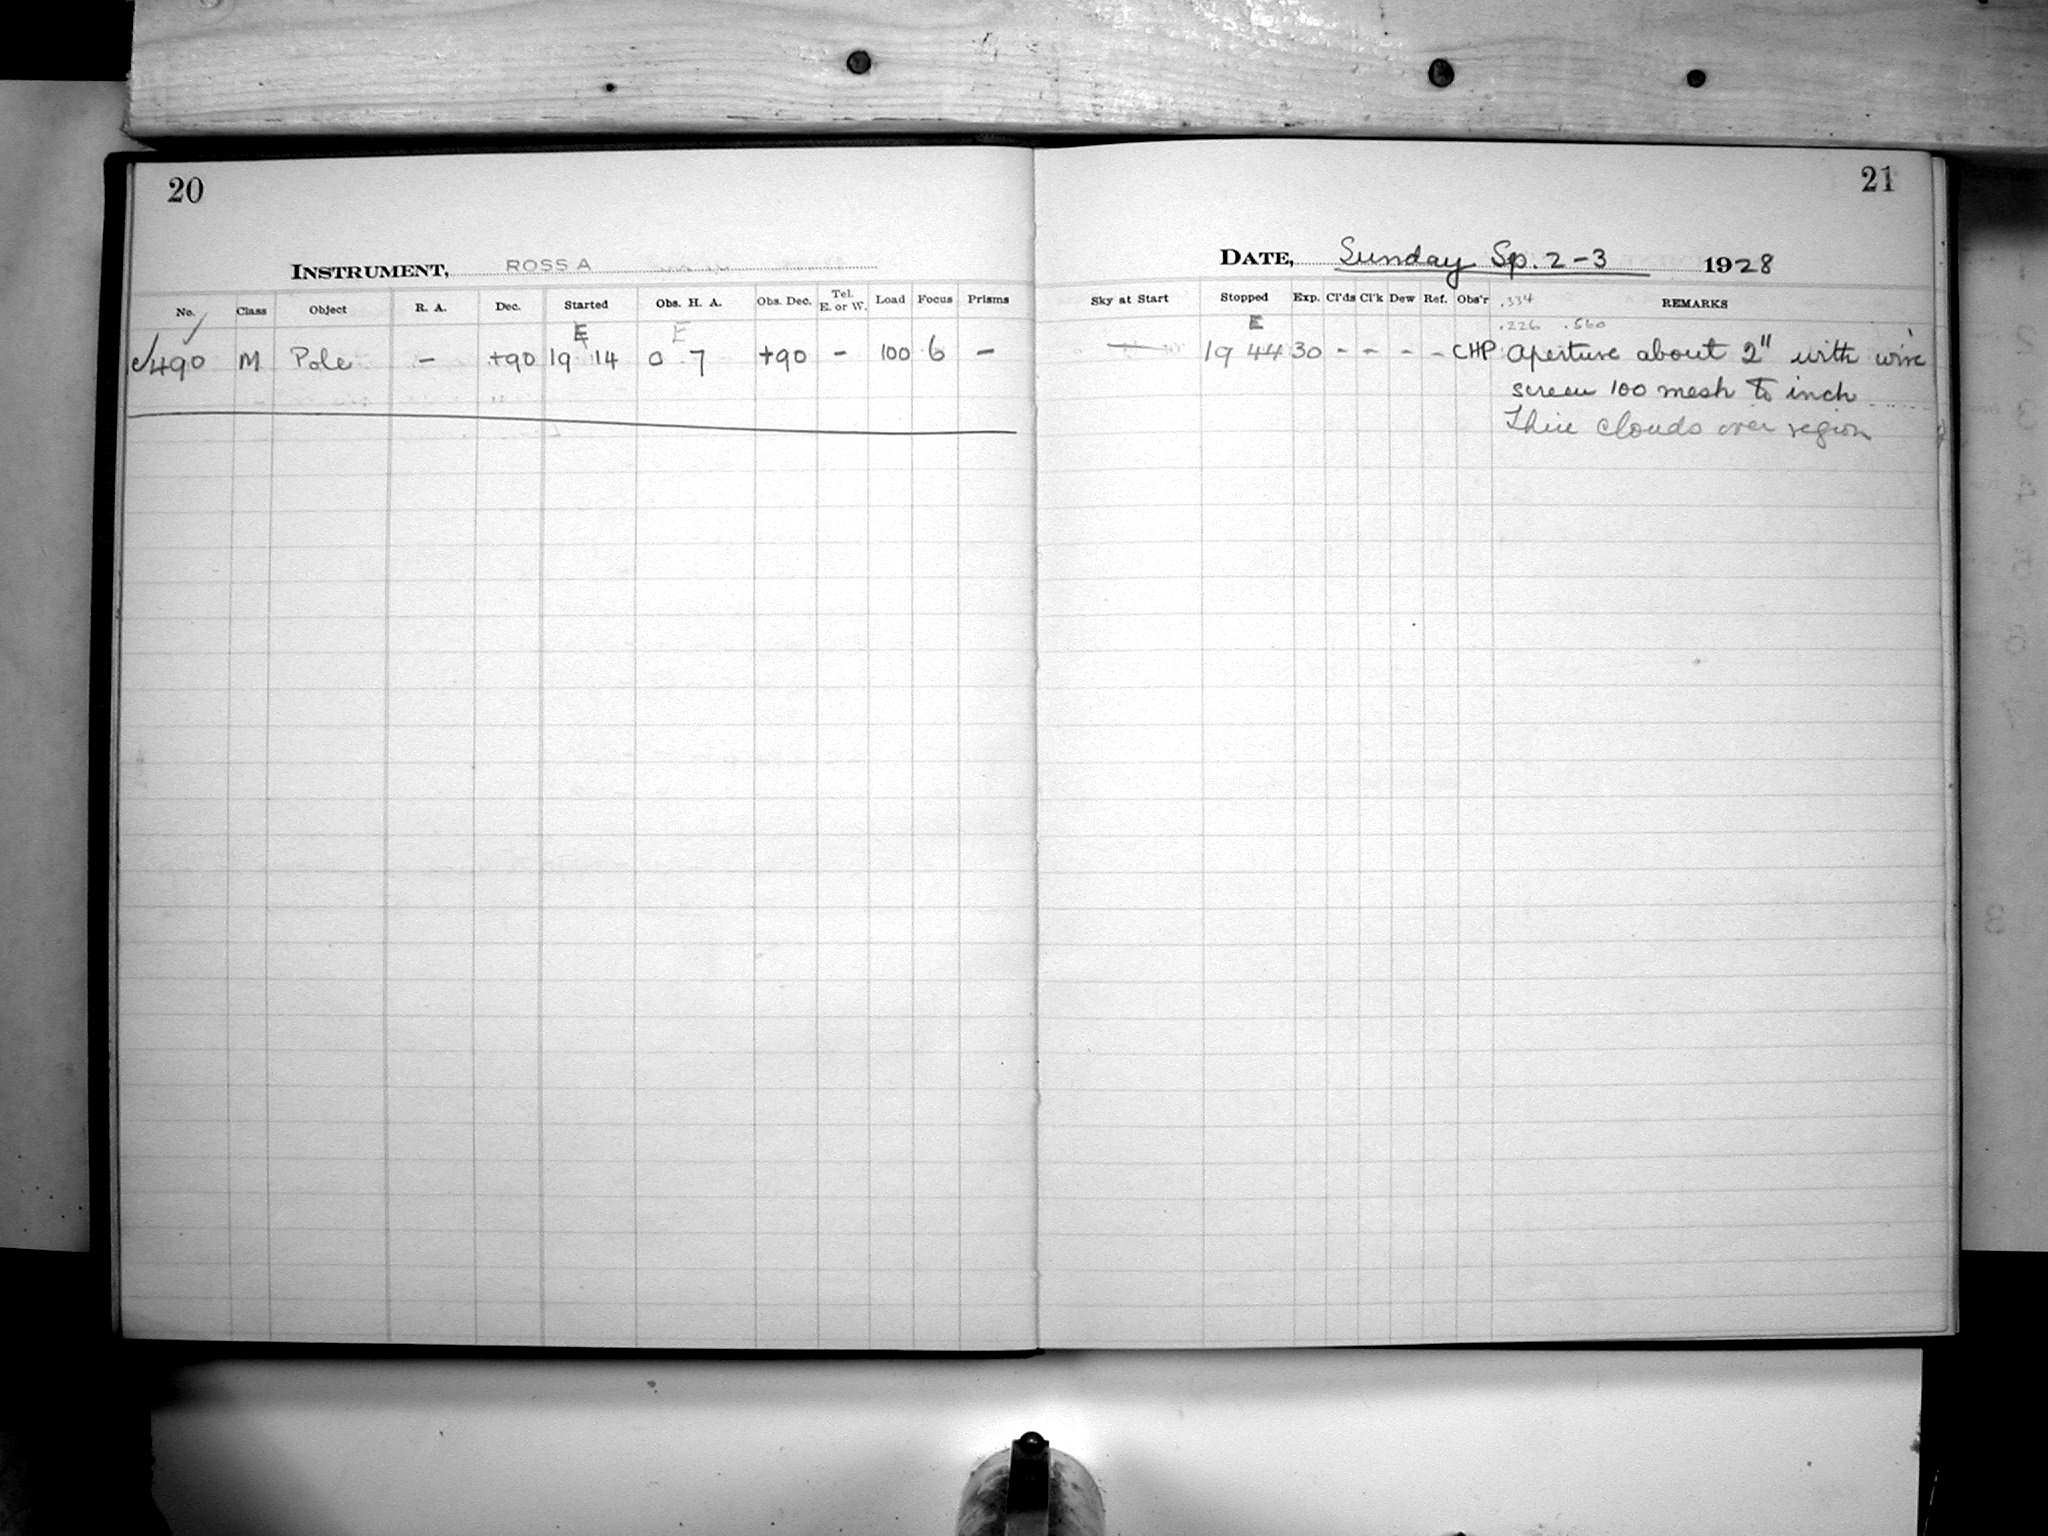 20
INSTRUMENT, ROSS A
No. Class Object R. A. Dec. Started Obs. H. A. Obs. Dec. Tel. E. or W. Load Focus Prisms
E E
490 M Pole - +90 19 14 0 7 +90 - 100 6 -
21
DATE, Sunday Sp. 2-3 1928
Sky at Start Stopped Exp. Cl'ds Cl'k Dew Ref. Obs'r .334 REMARKS
E .226 .560
19 44 30 - - - - CHP Aperture about 2" with wire
screen 100 mesh to inch
Thin clouds over region